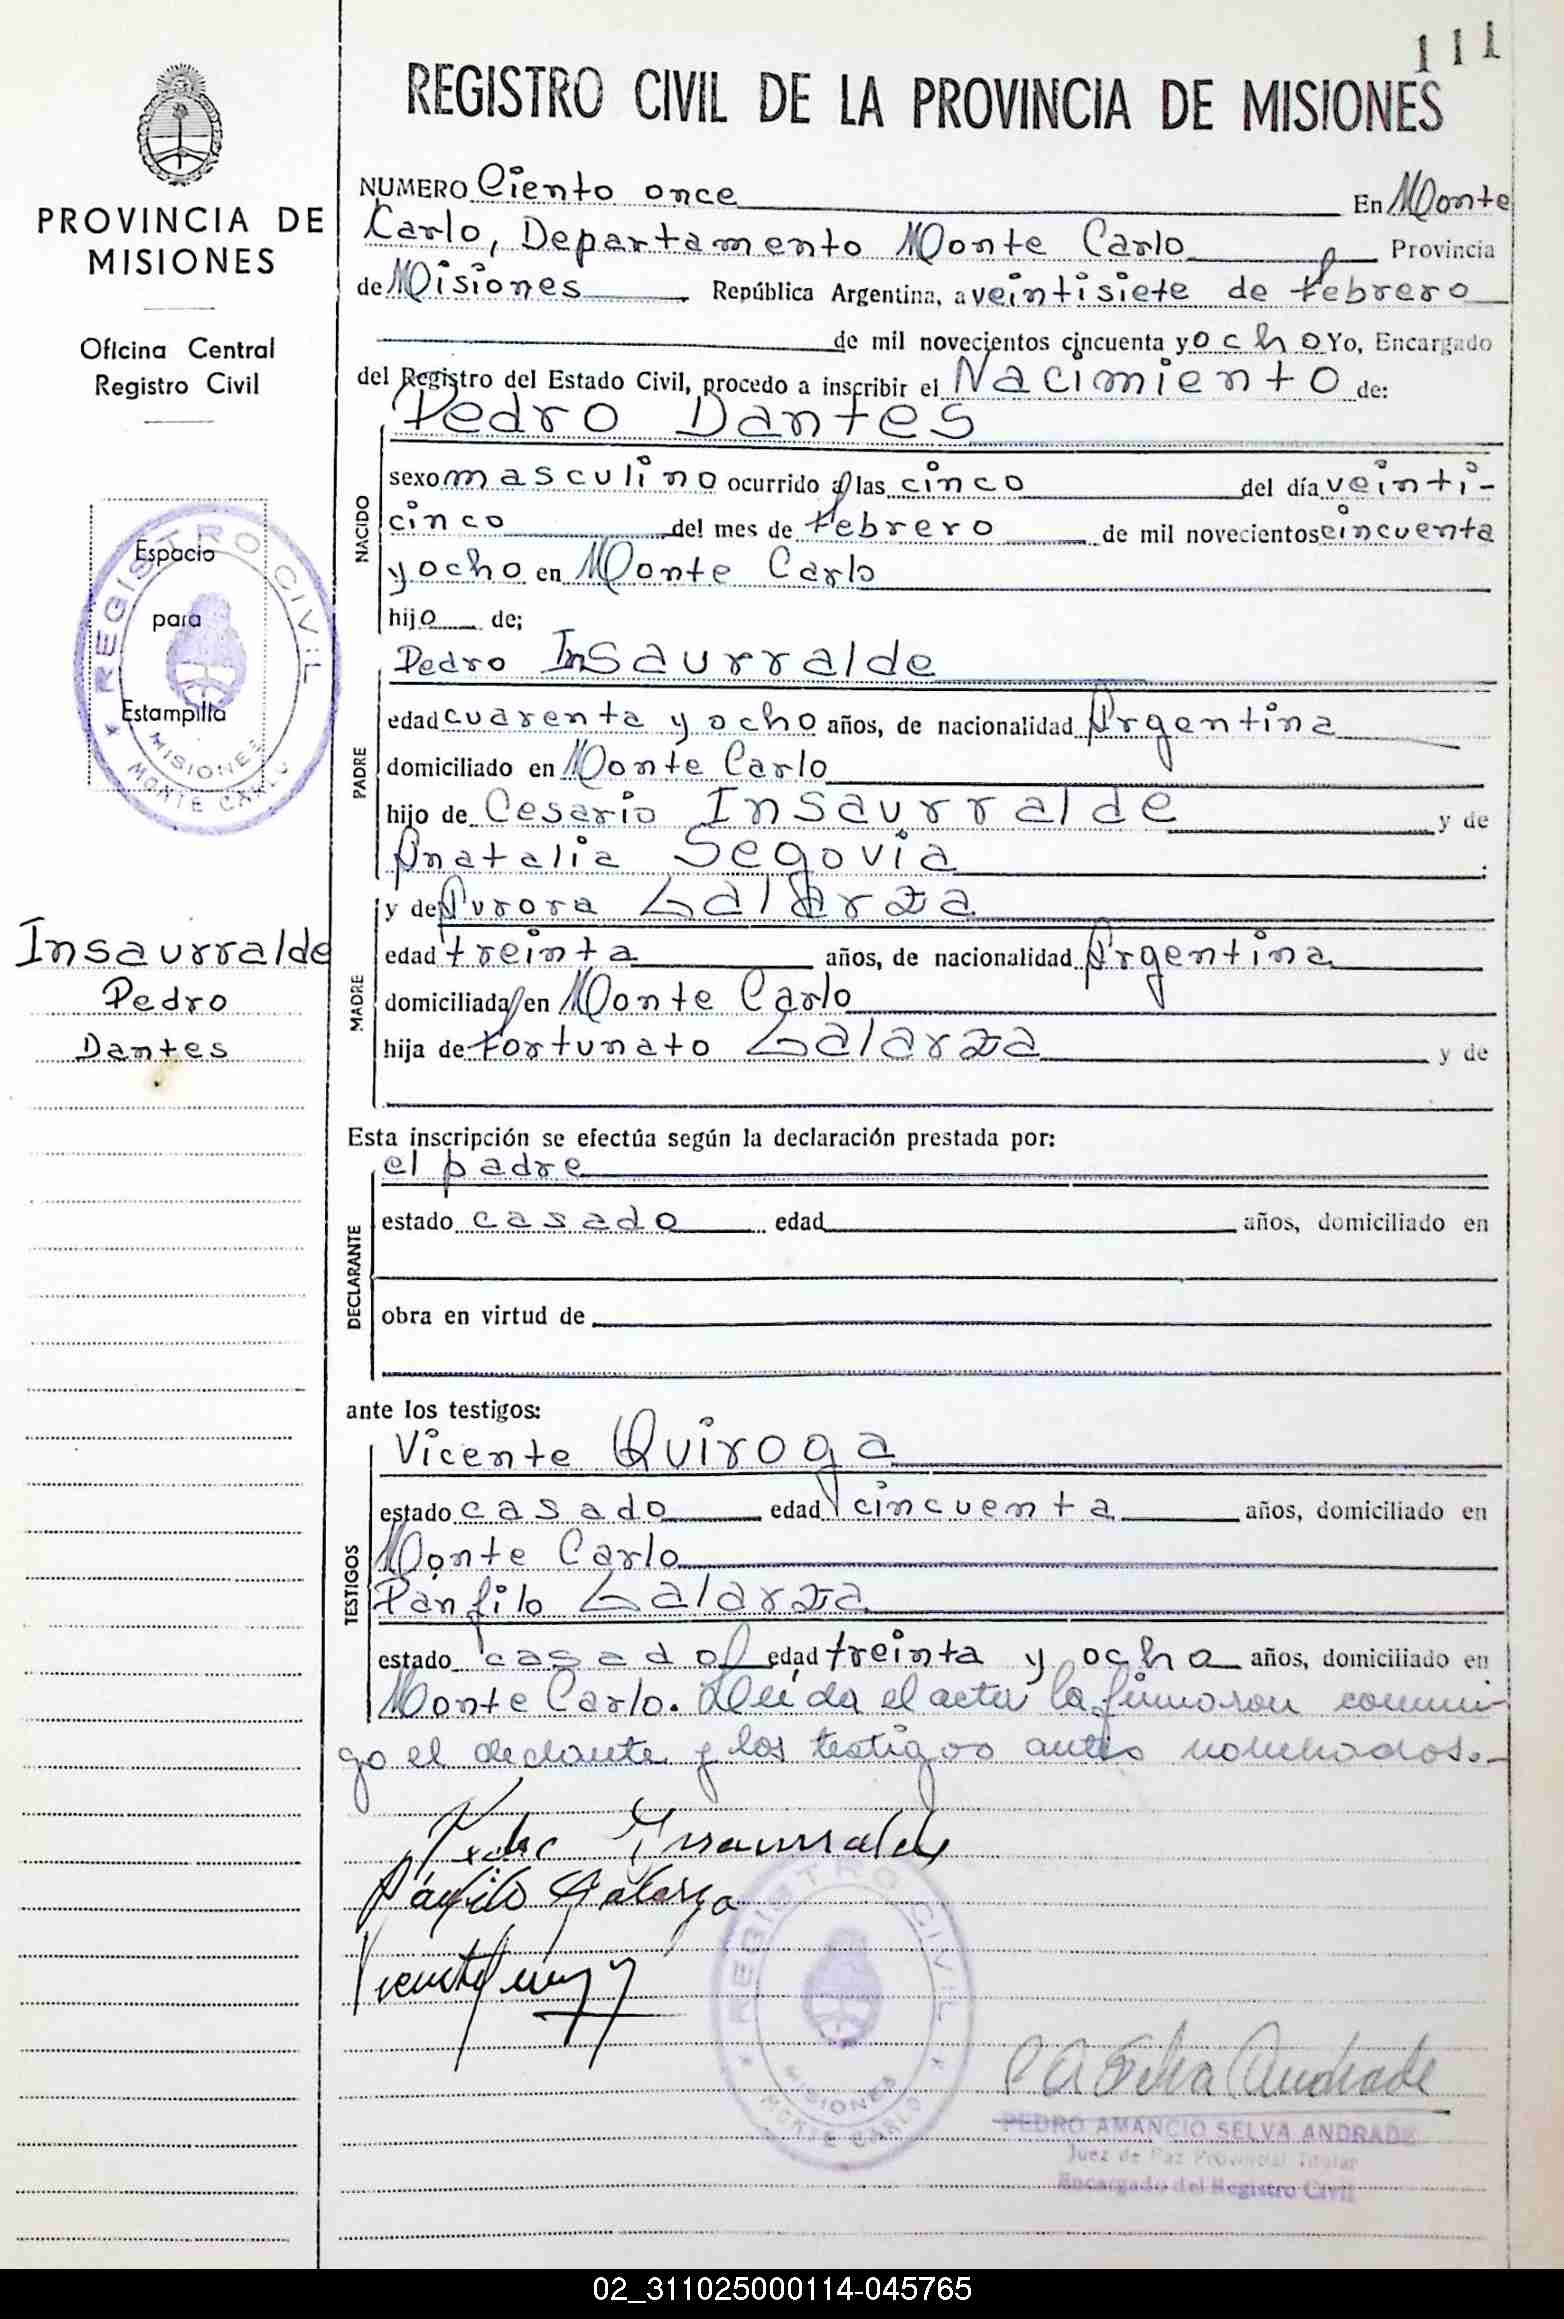 111
REGISTRO CIVIL DE LA PROVINCIA DE MISIONES
PROVINCIA DE
MISIONES
Oficina Central
Registro Civil
Espacio
para
Estampilla
REGISTRO CIVIL
MISIONES
MONTE CARLO
Insaurralde
Pedro
Dantes
NUMERO Ciento once En Monte
Carlo, Departamento Monte Carlo Provincia
de Misiones República Argentina, a veintisiete de febrero
de mil novecientos cincuenta y ocho Yo, Encargado
del Registro del Estado Civil, procedo a inscribir el Nacimiento de:
NACIDO
Pedro Dantes
sexo masculino ocurrido a las cinco del día veinti-
cinco del mes de febrero de mil novecientos cincuenta
y ocho en Monte Carlo
hijo de;
PADRE
Pedro Insaurralde
edad cuarenta y ocho años, de nacionalidad Argentina
domiciliado en Monte Carlo
hijo de Cesario Insaurralde y de
Anatalia Segovia
MADRE
y de Aurora Galarza
edad treinta años, de nacionalidad Argentina
domiciliada en Monte Carlo
hija de Fortunato Galarza y de
Esta inscripción se efectúa según la declaración prestada por:
DECLARANTE
el padre
estado casado edad años, domiciliado en
obra en virtud de
ante los testigos:
TESTIGOS
Vicente Quiroga
estado casado edad cincuenta años, domiciliado en
Monte Carlo
Pánfilo Galarza
estado casado edad treinta y ocho años, domiciliado en
Monte Carlo. Leída el acta la firmaron conmi-
go el declante y los testigos antes nombrados.-
Pedro Insaurralde
Pánfilo Galarza
REGISTRO CIVIL
MISIONES
MONTE CARLO
P A Selva Andrade
PEDRO AMANCIO SELVA ANDRADE
Juez de Paz Provincial Titular
Encargado del Registro Civil
02_311025000114-045765